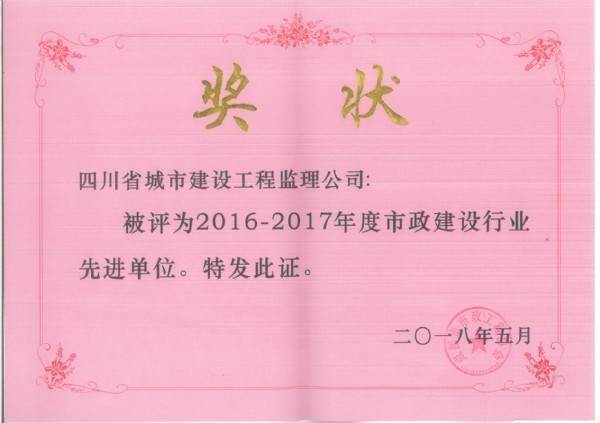 奖状
四川省城市建设工程监理公司:
被评为2016-2017年度市政建设行业
先进单位。特发此证。
二〇一八年五月